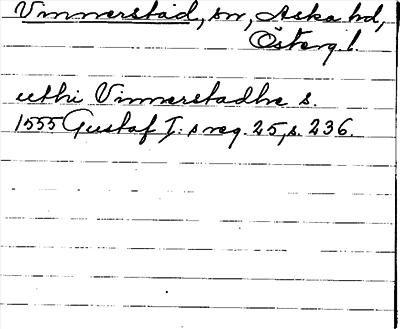 Vinnerstad, sn, Aska hd,
Österg. l.
uthi Vinnerstadhe s.
1555 Gustaf I:s reg. 25, s. 236.